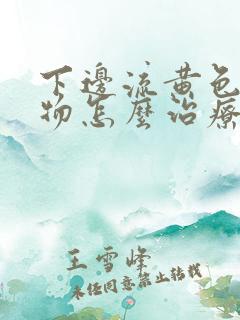 下邊流黄色
物怎麽治療
王雪峰
未经同意禁止转载